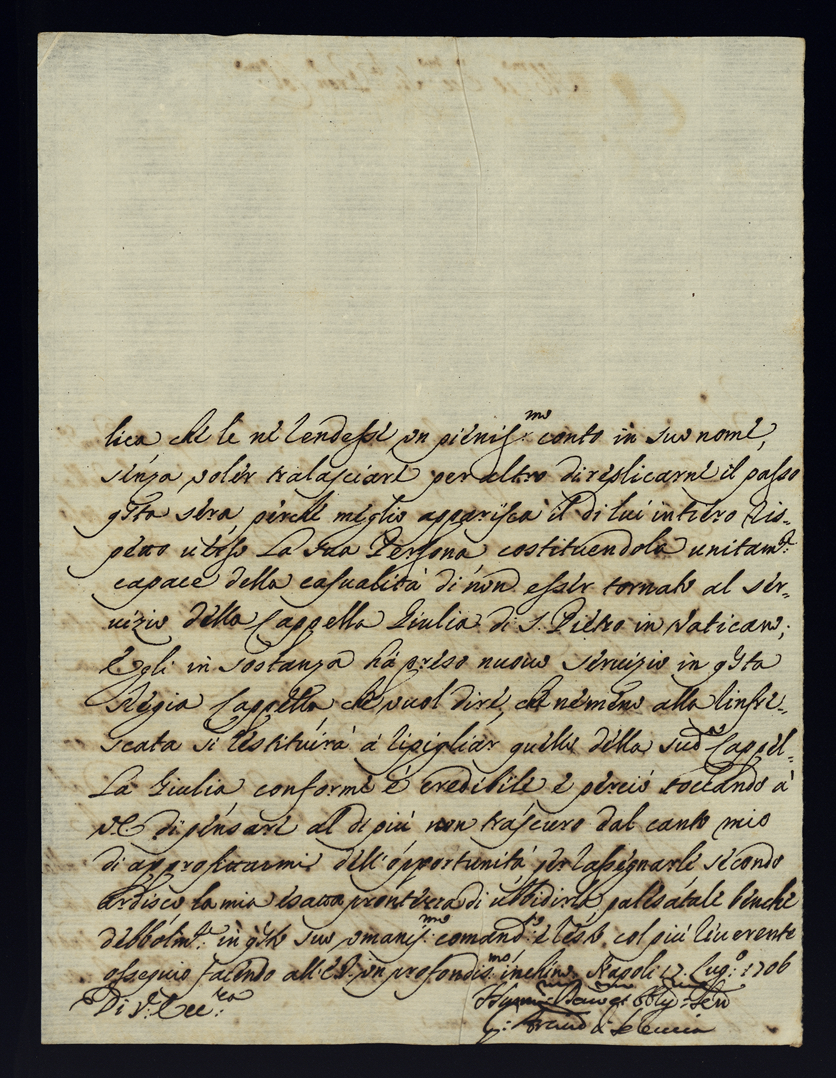 lica che le ne rendessi un pieniss.mo conto in suo nome,
senza voler tralasciare per altro di replicarne il passo
q.sta sera, perche meglio apparisca il di lui intiero ris-
petto verso la sua Persona costituendola unitam.te
capace della casualità di non esser tornato al ser-
vizio della Cappella Giulia di S. Pietro in Vaticano;
Egli in sostanza hà preso nuovo servizio in q.sta
Regia Cappella, che vuol dire, che nemeno alla rinfre-
scata si restituirà a ripigliar quello della sud.a Cappel-
la Giulia conforme è credibile e perciò toccando à
V.E. di pensare al di più non trascuro dal canto mio
di approfittarmi dell'opportunità per rassegnarle secondo
ardisco la mia esatta prontezza di ubbidirla palesatale benche
debbolm.te in q.sto suo umaniss.mo comand.to e resto col più riverente
ossequio facendo all'E.V. un profondiss.mo inchino Napoli 17 Lug.o 1706
Di V. Ecc.za Humiliss.mo Devot.mo Oblig.mo Ser.